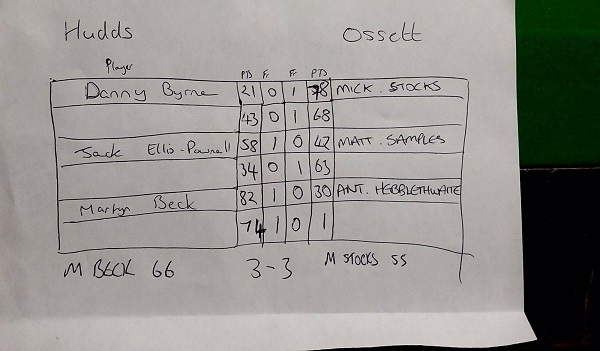 Hudds Ossett
Player PTS Fr Fr PTS
Danny Byrne 21 0 1 78 MICK. STOCKS
43 0 1 68
Jack Ellis-Pownall 58 1 0 42 MATT. SAMPLES
34 0 1 63
Martyn Beck 82 1 0 30 ANT. HEBBLETHWAITE
74 1 0 1
M BECK 66 3-3 M STOCKS 55